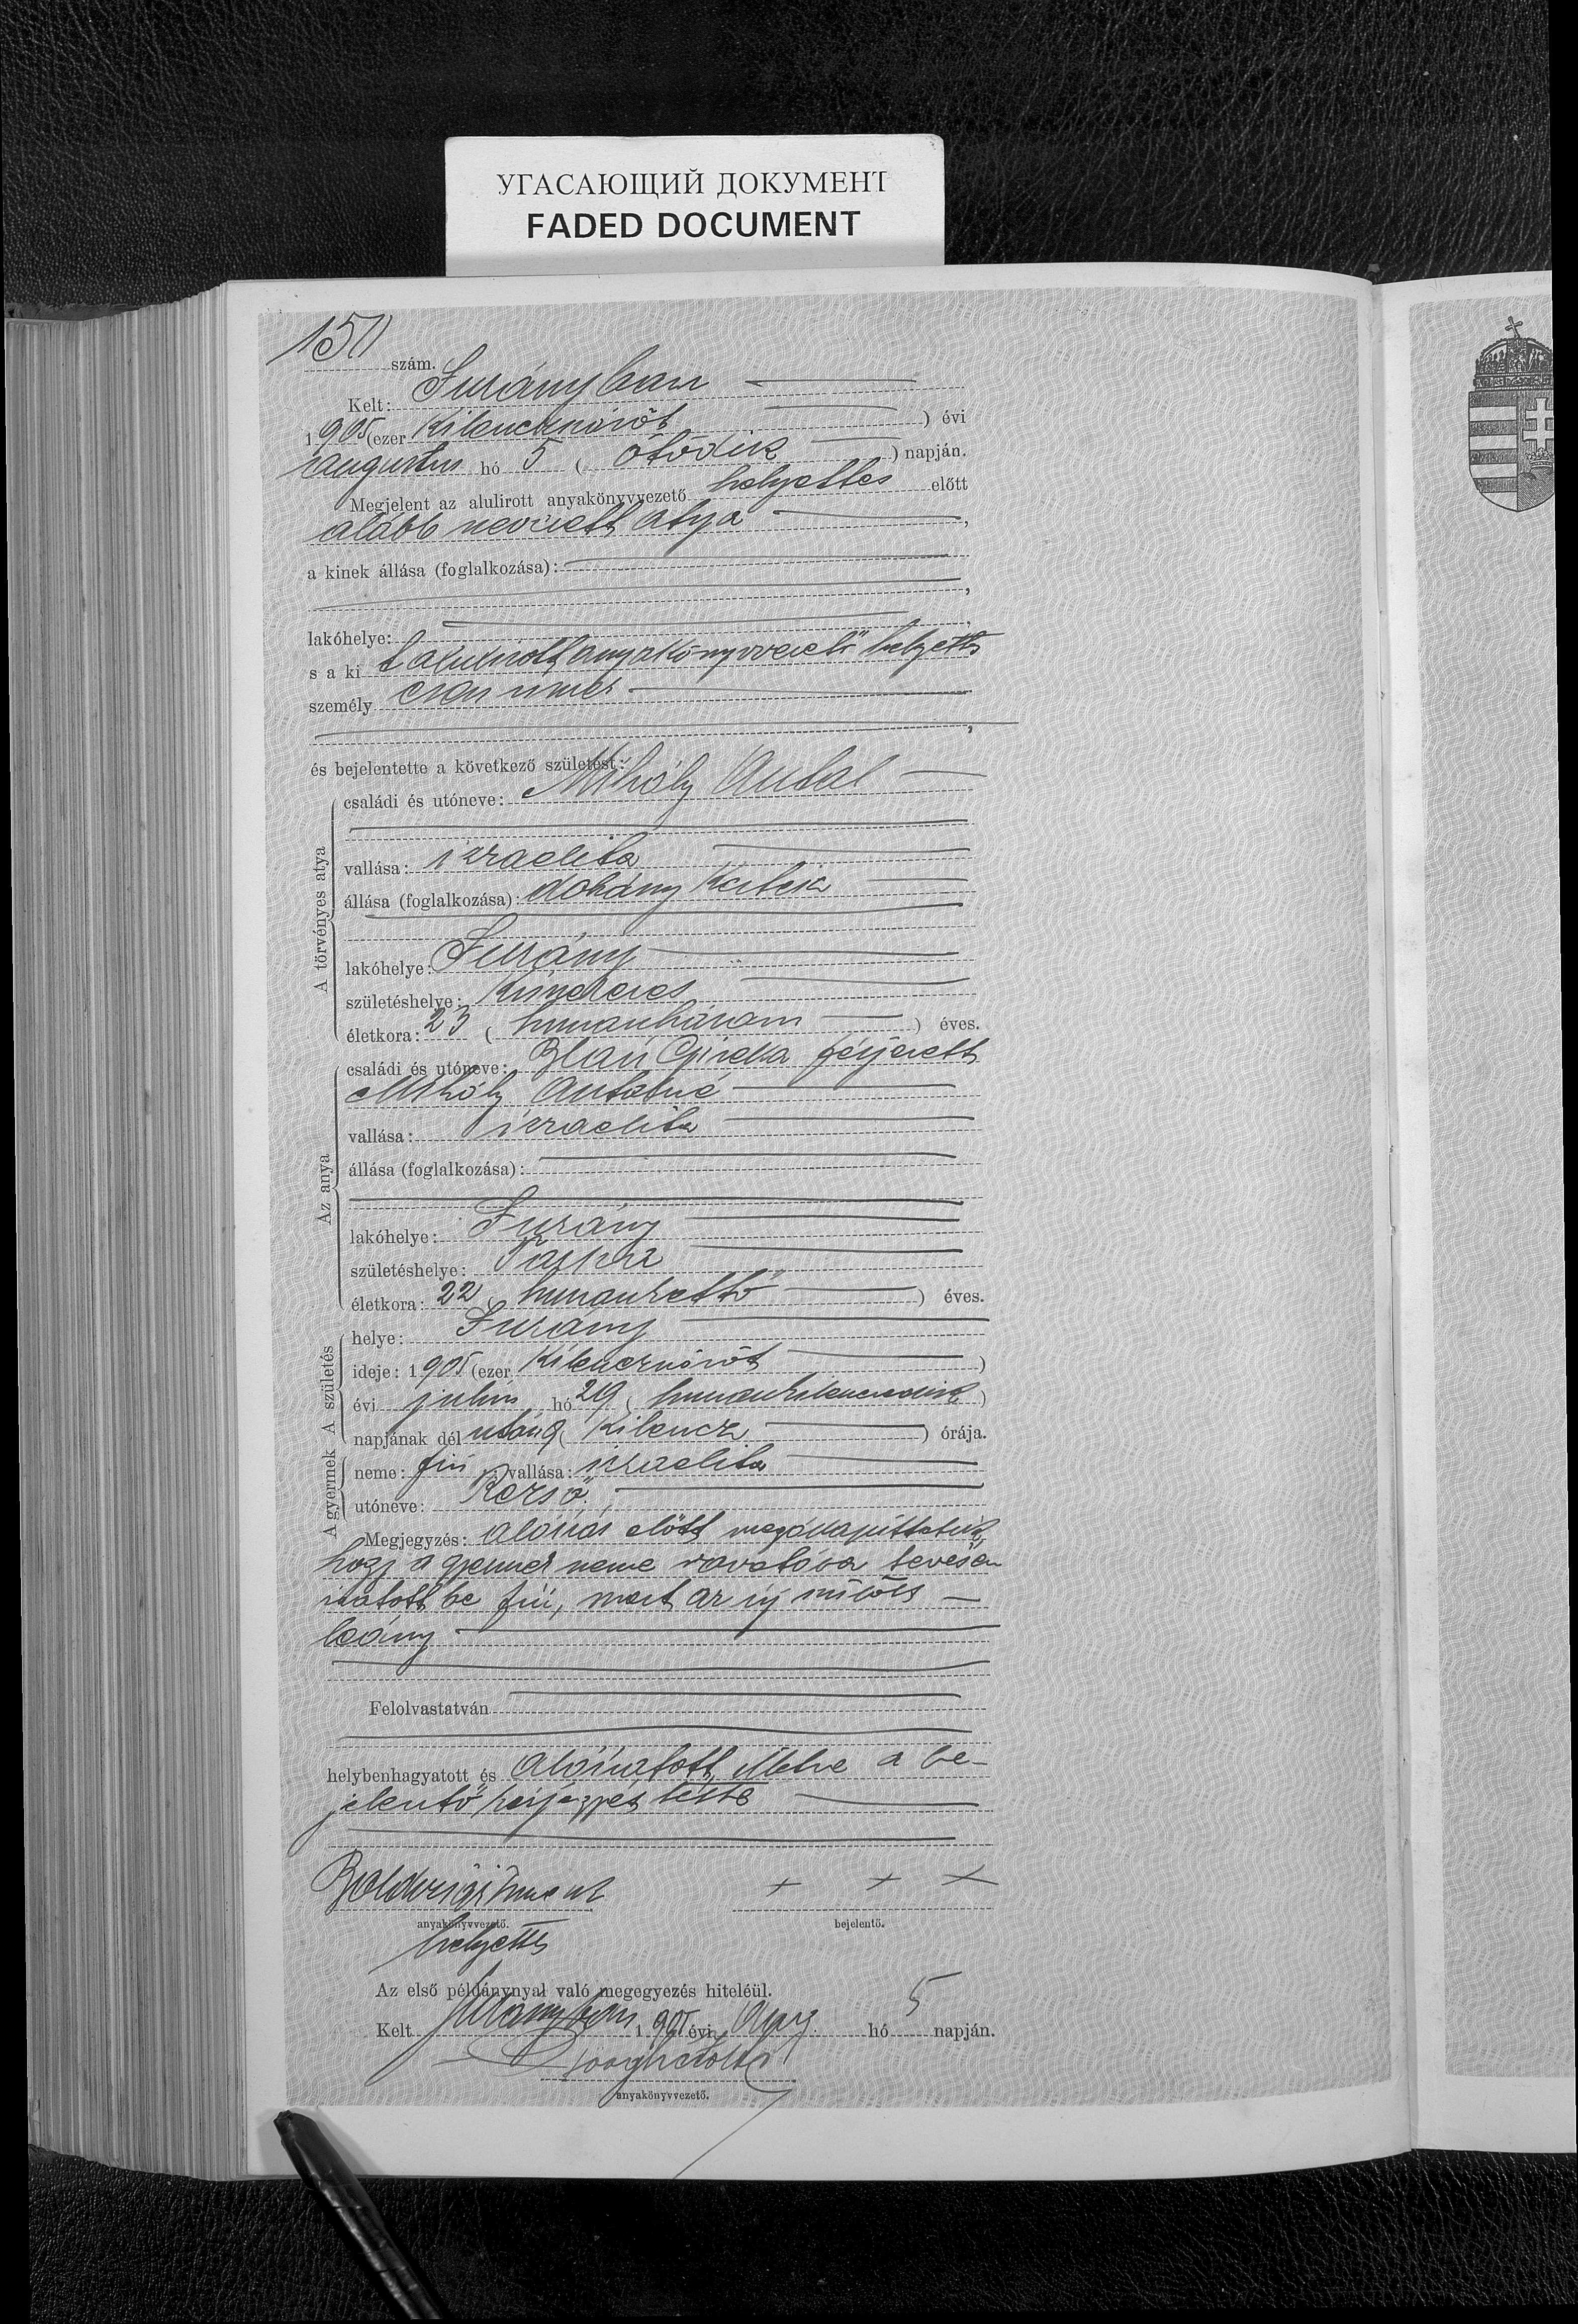 УГАСАЮЩИЙ ДОКУМЕНТ
FADED DOCUMENT
szám.
Kelt: Surányban
1905 (ezer kilenczszázöt ) évi
augusztus hó 5 ( ötödik ) napján.
Megjelent az alulirott anyakönyvvezető helyettes előtt
alább nevezett atya,
a kinek állása (foglalkozása):
lakóhelye:
s a ki t alulirott anyakönyvvezető helyettes
személy ismer
és bejelentette a következő születést:
A törvényes atya
családi és utóneve: Mihály Antal
vallása: izraelita
állása (foglalkozása): dohány kertész
lakóhelye: Surány
születéshelye:
életkora: 23 ( huszonhárom ) éves.
Az anya
családi és utóneve: Blau férjezett
Mihály Antalné
vallása: izraelita
állása (foglalkozása):
lakóhelye: Surány
születéshelye:
életkora: 22 ( huszonkettő ) éves.
A születés
helye: Surány
ideje: 1905 (ezer kilenczszázöt )
évi julius hó 29 ( huszonkilenczedik )
napjának dél után 9 ( kilencz ) órája.
A gyermek
neme: fiú vallása: izraelita
utóneve: Rezső
Megjegyzés: Aláírás előtt megállapíttatik,
hogy a gyermek neme rovatába tévesen
iratott be fiú, mert az új szülött
leány
Felolvastatván
helybenhagyatott és aláíratott, illetve a be-
jelentő kézjegyét tette
+ + +
anyakönyvvezető. bejelentő.
helyettes
Az első példánynyal való megegyezés hiteléül.
Kelt Surányban 1905 évi Aug. hó 5 napján.
anyakönyvvezető.